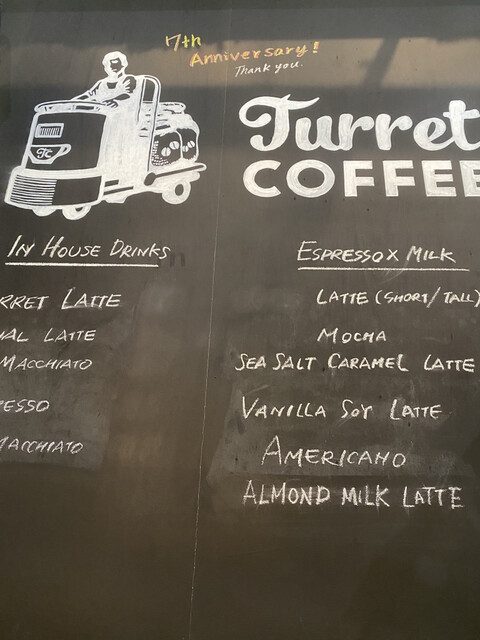 7th
Anniversary!
Thank you.
TC
Turret
COFFEE
IN HOUSE DRINKS
LATTE
LATTE
MACCHIATO
MACCHIATO
ESPRESSO X MILK
LATTE (SHORT/TALL)
MOCHA
SEA SALT CARAMEL LATTE
VANILLA SOY LATTE
AMERICANO
ALMOND MILK LATTE